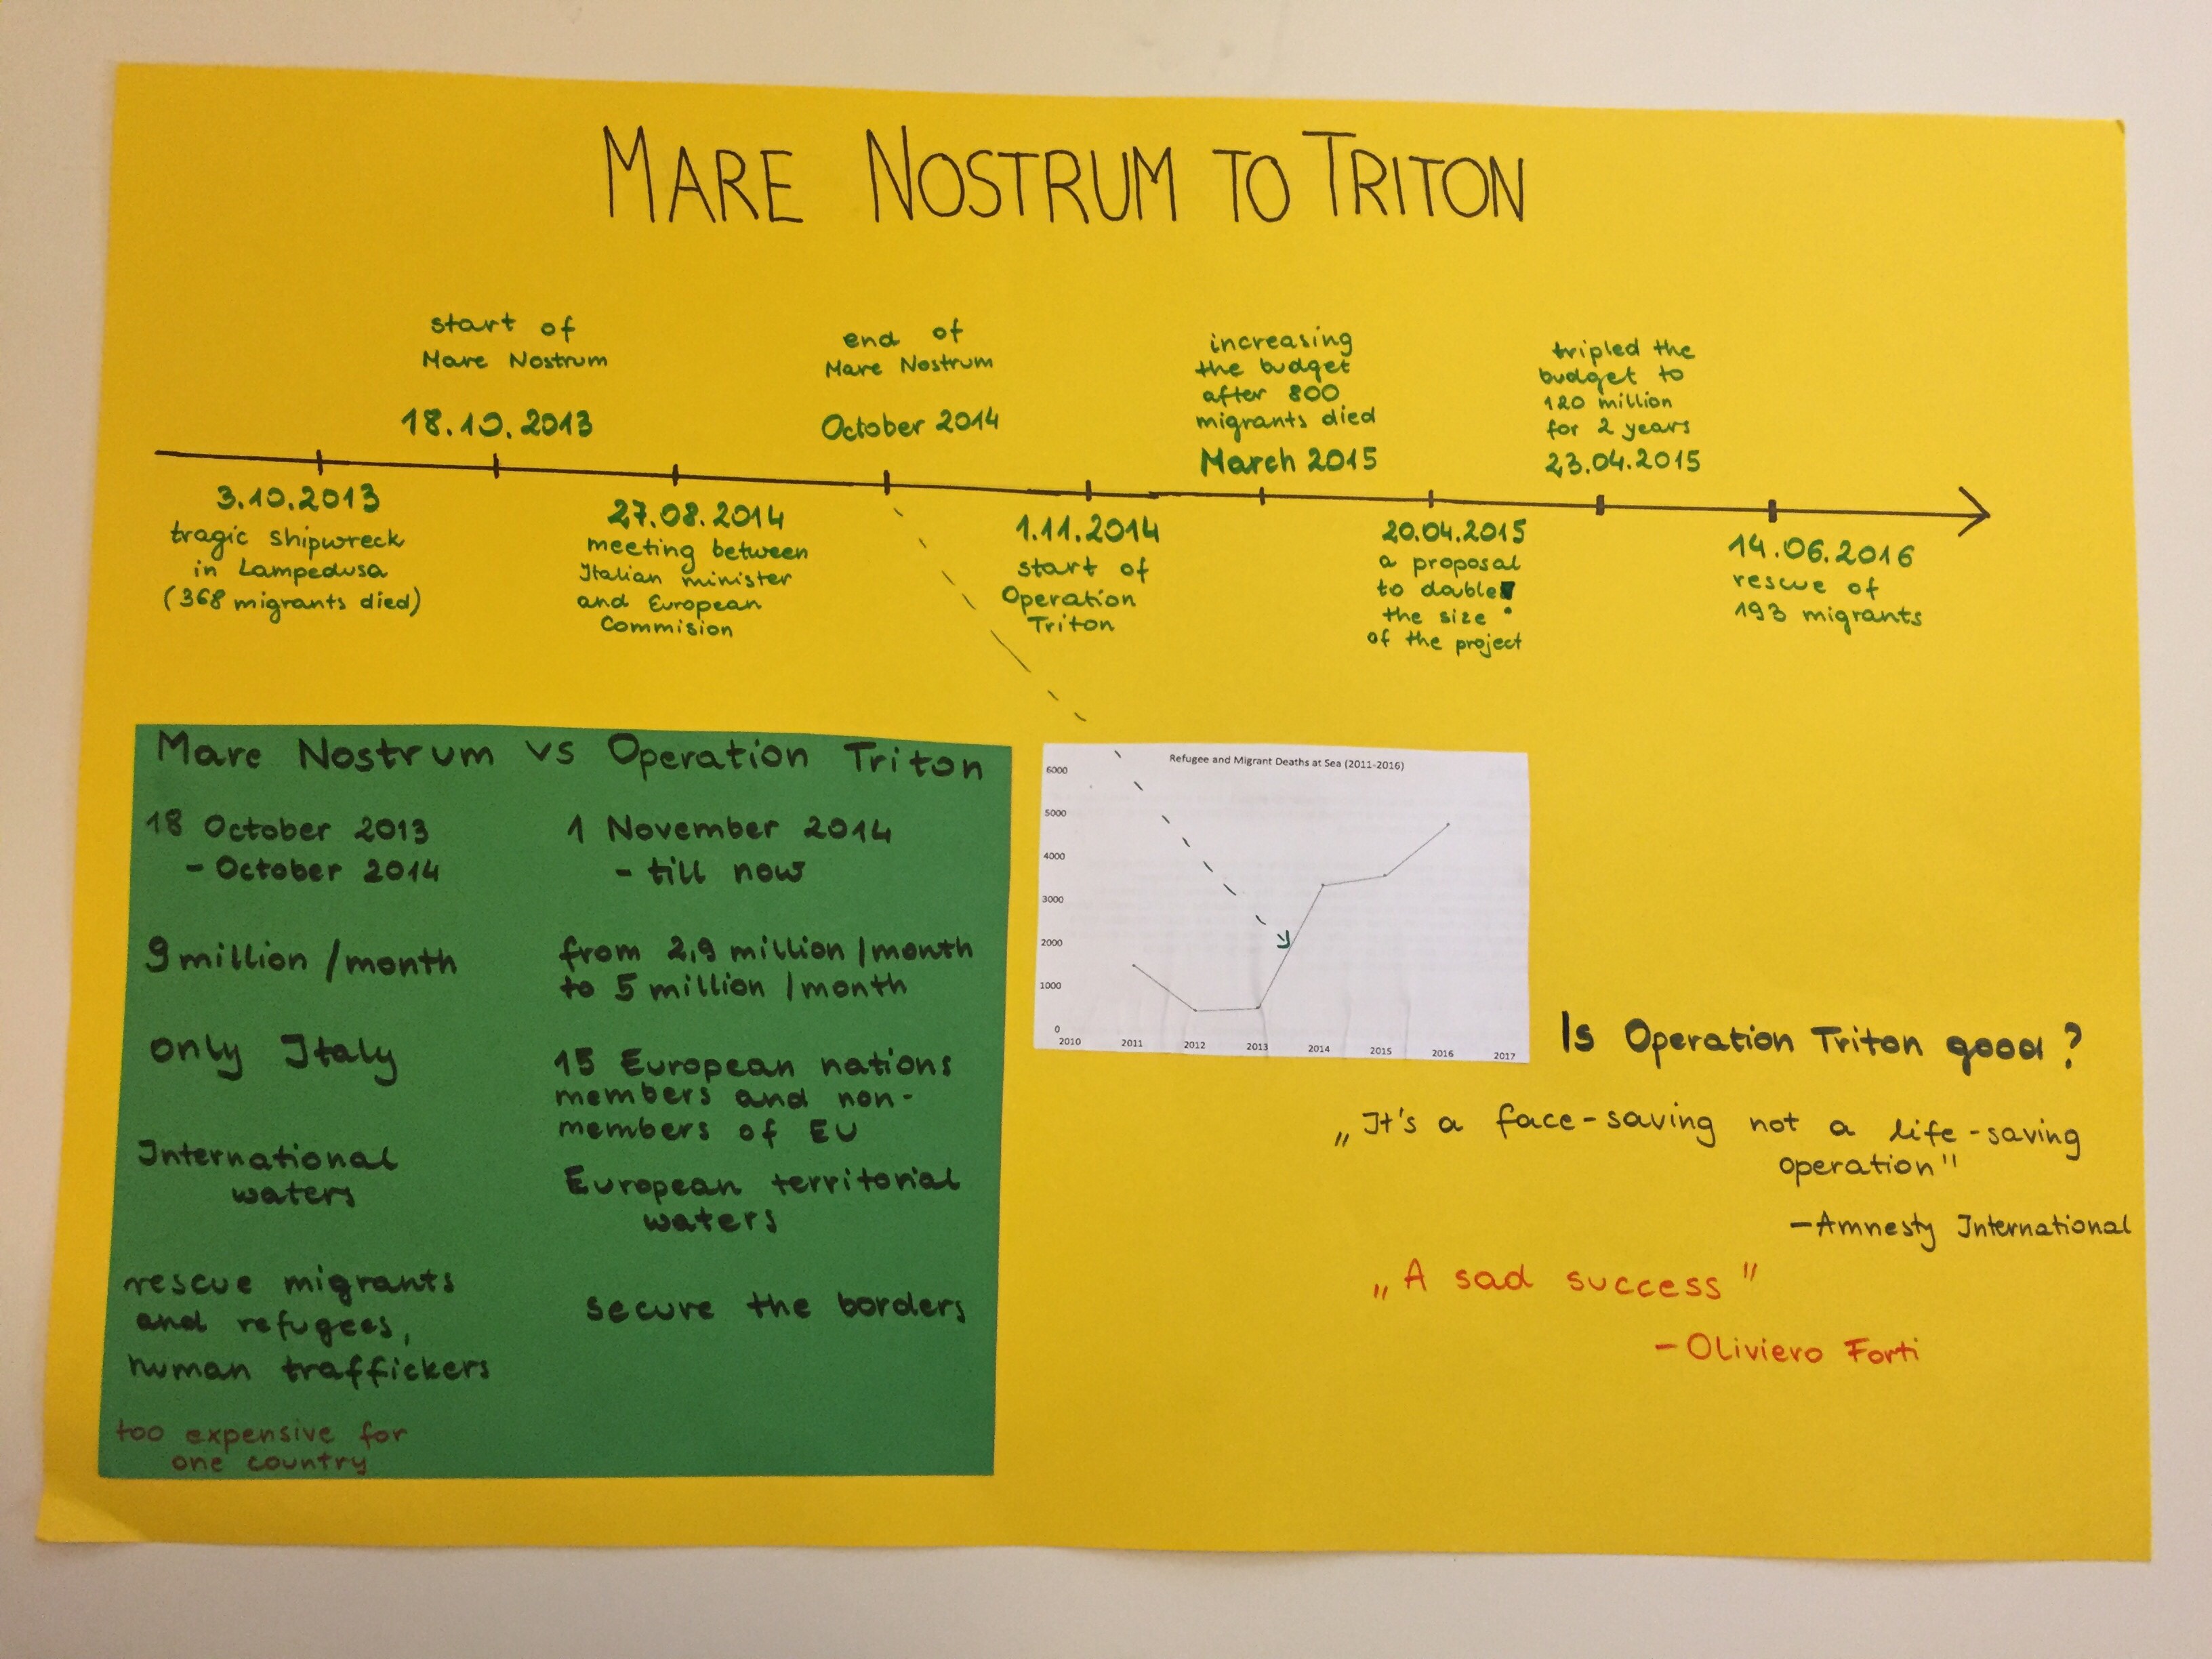 MARE NOSTRUM TO TRITON
start of
Mare Nostrum
18.10.2013
end of
Mare Nostrum
October 2014
increasing
the budget
after 800
migrants died
March 2015
tripled the
budget to
120 million
for 2 years
23.04.2015
3.10.2013
tragic shipwreck
in Lampedusa
(368 migrants died)
27.08.2014
meeting between
Italian minister
and European
Commision
1.11.2014
start of
Operation
Triton
20.04.2015
a proposal
to double
the size
of the project
14.06.2016
rescue of
193 migrants
Mare Nostrum vs Operation Triton
18 October 2013
- October 2014
9 million /month
only Italy
International
waters
rescue migrants
and refugees,
human traffickers
too expensive for
one country
1 November 2014
- till now
from 2,9 million /month
to 5 million /month
15 European nations
members and non-
members of EU
European territorial
waters
secure the borders
Refugee and Migrant Deaths at Sea (2011-2016)
6000
5000
4000
3000
2000
1000
0
2010 2011 2012 2013 2014 2015 2016 2017
Is Operation Triton good?
„It's a face-saving not a life-saving
operation"
-Amnesty International
„A sad success"
- Oliviero Forti